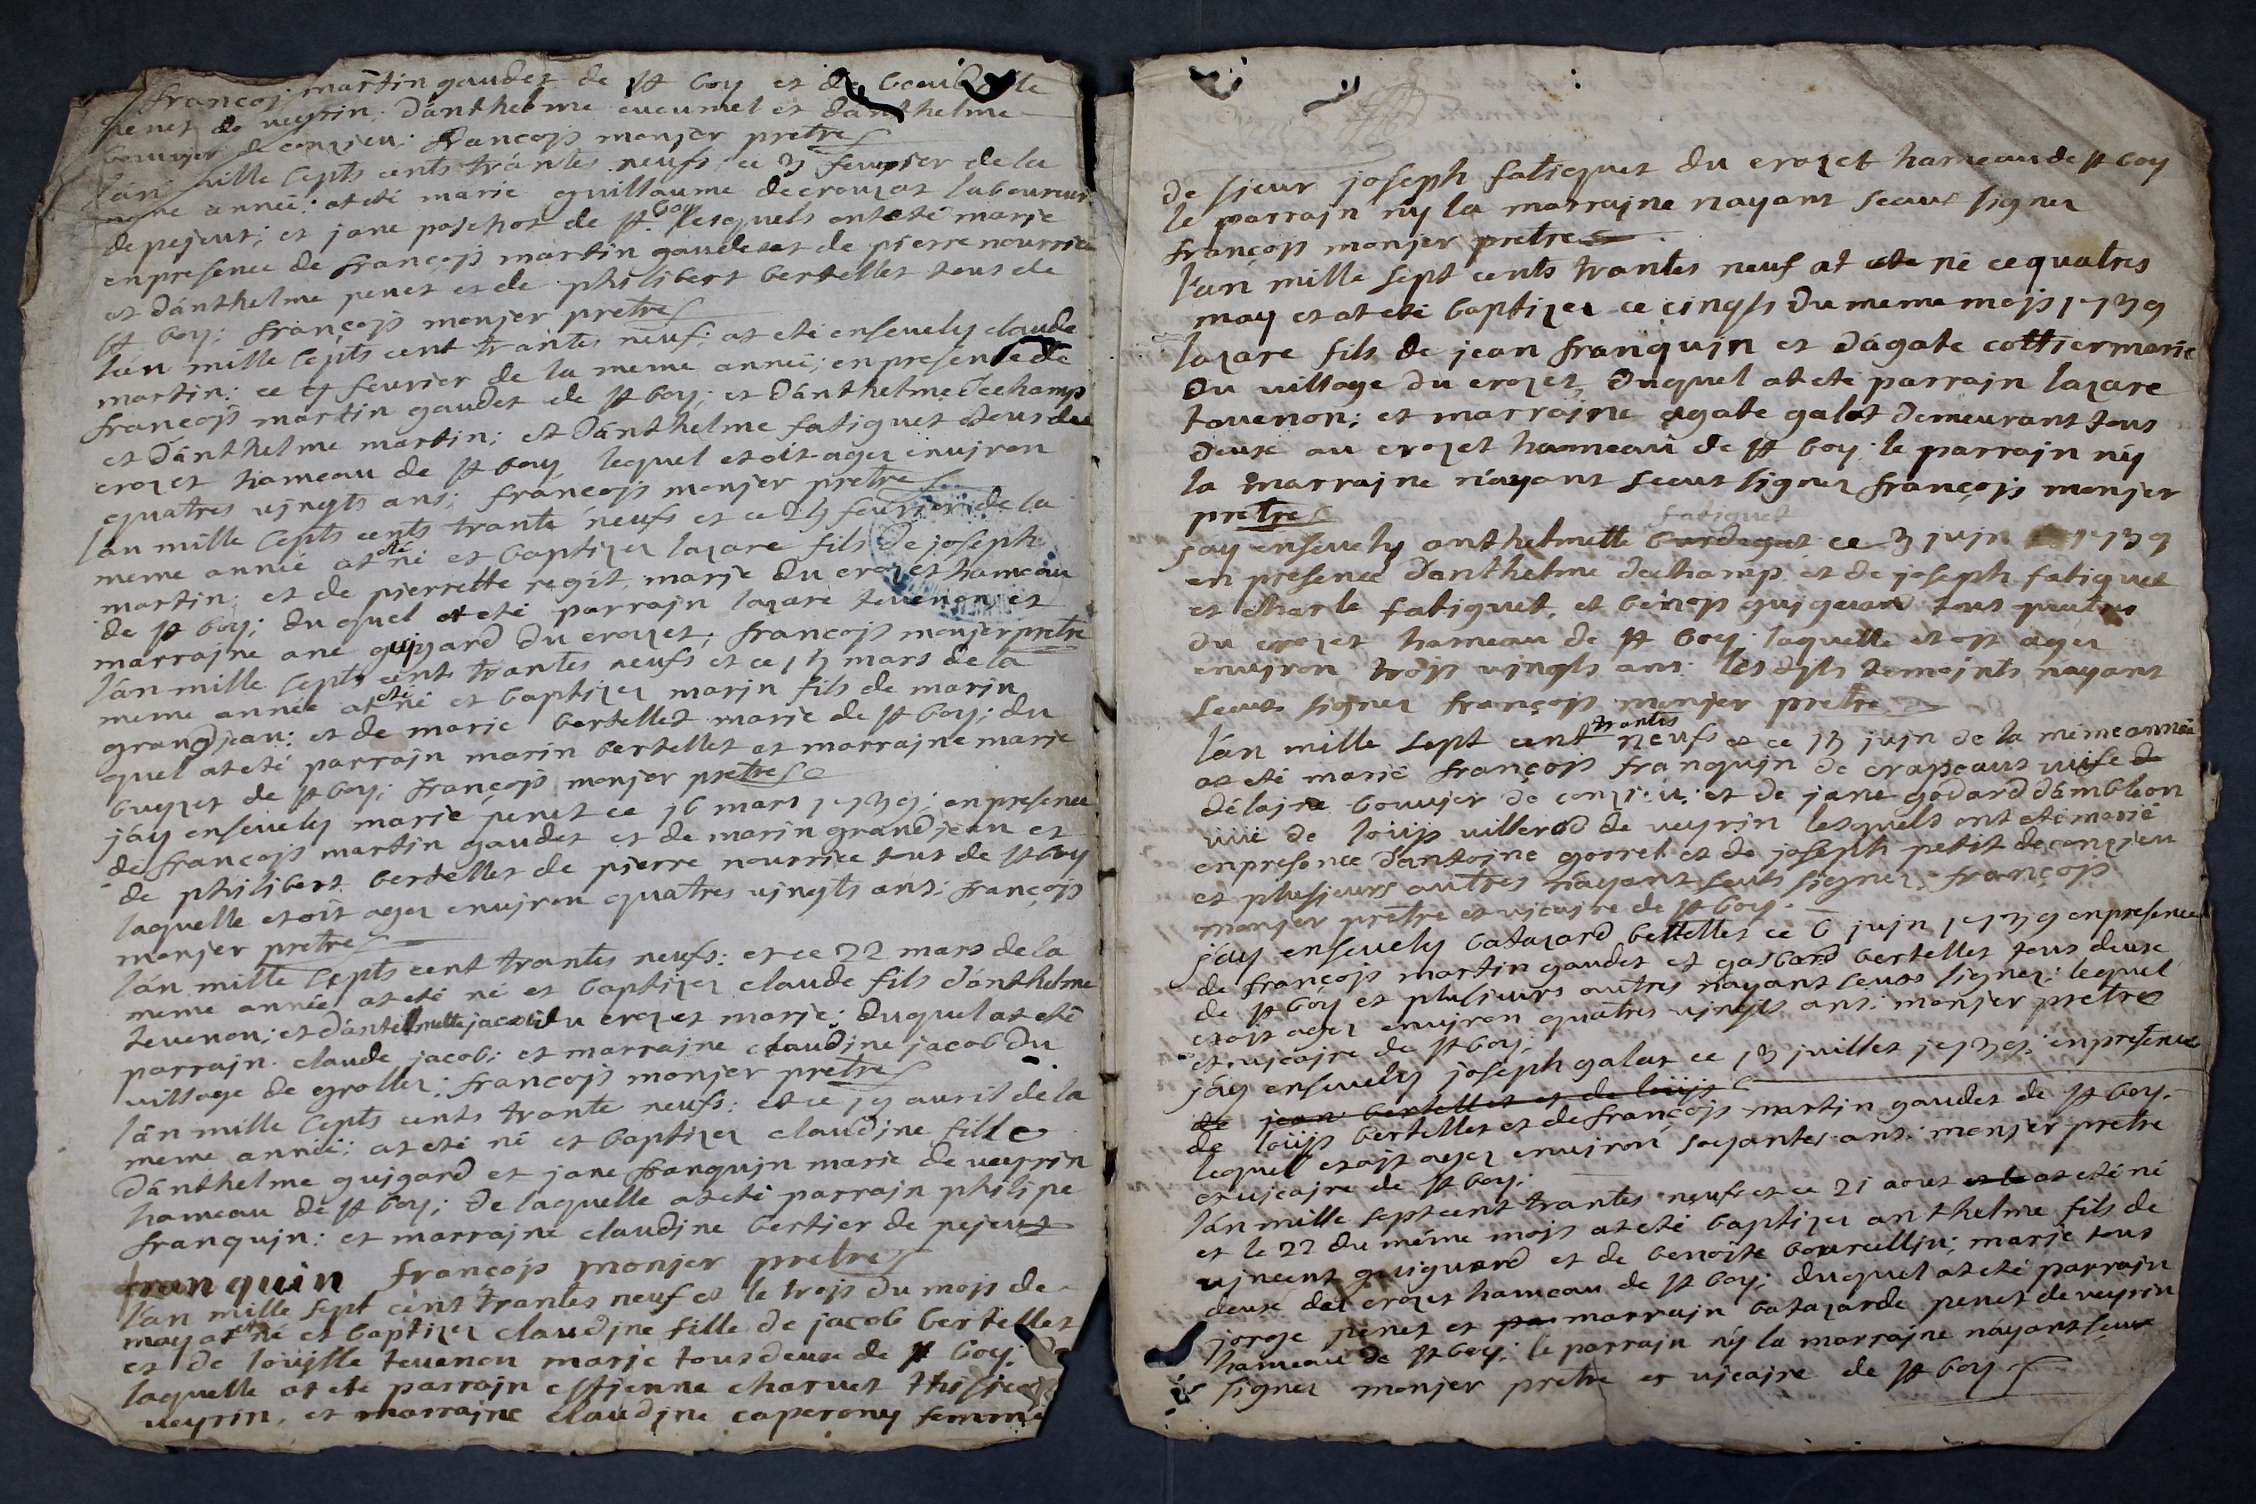 françois martin gaudet de st boy et de
penet de veyrin, d'anthelme cucumel et d'anthelme
bouvjer de conzieu; françois monjer pretre
l'an mille septs cents trantes neufs ce 3 feuvrier de la
meme anneé; at eté marié guillaume decrouzat laboureur
de pejeut; et jane poschot de st boy lesquels ont eté marje
en presence de françojs martin gaudet et de pierre nourrice
et d'anthelme penet et de philibert bertellet tous de
st boy; françojs monjer pretre
l'an mille septs cent trantes neuf at eté ensevely claude
martin; ce fevrier de la meme anneé; en presence de
françojs martin gaudet de st boy; et d'anthelme dechamp
et d'anthelme martin; et d'anthelme fatiquet tous du
crozet hameau de st boy lequel etoit agez environ
quatres vjngts ans; françojs monjer pretre
l'an mille septs cents trante neufs et ce fevrier de la
meme anneé at eté né et baptizez lazare fils de joseph
martin; et de pjerrette regit, marje du crozet hameau
de st boy; duquel at eté parrajn lazare tevenon et
marrajne ane gujgard du crozet; françojs monjer pretre
l'an mille septs cents trantes neufs et ce 13 mars de la
meme anneé at eté né et baptizez marjn fils de marjn
grandjean; et de marie bertellet marje de st boy; du
quel at eté parrajn marin bertellet et marrajne marje
buyzet de st boy; françojs monjer pretre
j'ay ensevely marie penet ce 16 mars 1739; en presence
de françojs martin gaudet et de marin grandjean et
de philibert bertellet de pjerre nourrice tous de st boy
laquelle etoit agez envjron quatres vjngts ans; françojs
monjer pretre
l'an mille septs cent trantes neufs; et ce 22 mars de la
meme anneé at eté né et baptizez claude fils d'anthelme
tevenon; et d'antelmette jacob du crozet marje; duquel at eté
parrajn claude jacob; et marrajne claudjne jacob du
village de grollez; françojs monjer pretre
l'an mille septs cents trante neufs; et ce 19 avril de la
meme anneé; at eté né et baptizez claudjne fille
d'anthelme gujgard et jane franqujn marje de veyrin
hameau de st boy; de laquelle at eté parrajn philipe
franqujn; et marrajne claudjne bertjer de pejeut
franquin françojs monjer pretre
l'an mille sept cent trantes neuf et le trojs du mojs de
may at eté né et baptizez claudjne fille de jacob bertellet
et de louijse tevenon marje tous deux de st boy; de
laquelle at eté parrajn estjenne charvet
veyrin, et marrajne claudjne caperony femme
de sjeur joseph fatiquet du crozet hameau de st boy
le parrajn ny la marrajne nayant sceus signez
françojs monjer pretre
l'an mille sept cents trantes neuf at eté né ce quatres
may et at eté baptizez ce cinqs du meme mojs 1739
lazare fils de jean franqujn et d'agate cottier marie
du village du crozet, duquel at eté parrajn lazare
tovenon; et marrajne agate galet demeurant tous
deux au crozet hameau de st boy; le parrajn ny
la marrajne n'ayant sceus signez françojs monjer
pretre
fatiquet
j'ay ensevely anthelmette ce 3 jujn 1739
en presence d'anthelme dechamp et de joseph fatiquet
et charle fatiquet, et benojs gujguard tous quatres
du crozet hameau de st boy; laquelle etojt agez
envjron trojs vjngts ans; les dyts temojnts nayant
sceus signez françojs monjer pretre
l'an mille sept cent trantes neufs et ce 13 jujn de la meme anneé
at eté marié françojs franqujn de crapeaus vuife de
délajne bouvjer de conzieu; et de jane godard d'amblèon
vuie de loüijs villerod de veyrjn lesquels ont eté marié
en presence d'antojne gorret et de joseph petit de conzjeu
et plusjeurs autres n'ayant seuts sjgnez; françojs
monjer pretre et vjcajre de st boy;
j'ay ensevely batazard bettellet ce 6 jujn 1739 en presence
de françojs martin gaudet et gasbard bertellet tous deuse
de st boy et plusjeurs autres nayant seuts signez; lequel
etojt agez envjron quatres vjngts ans; monjer pretre
et vjcajre de st boy;
j'ay ensevely joseph galat ce 13 juillet 1739; en presence
de jean bertellet et de loüijs
de loüijs bertellet et de françojs martin gaudet de st boy.
lequel etojt agez environ soyantes ans; monjer pretre
et vjcajre de st boy;
l'an mille sept cent trantes neufs et ce 21 aout et le at eté né
et le 22 du méme mojs at eté baptizez anthelme fils de
vjncent guiguard et de benoite bourcelljn; marje tous
deuse del crozet hameau de st boy; duquel at eté parrajn
joroje penet et par marrajn batazarde penet de veyrin
hameau de st boy; le parrajn ny la marrajne n'ayant seus
signez monjer pretre et vjcajre de st boy